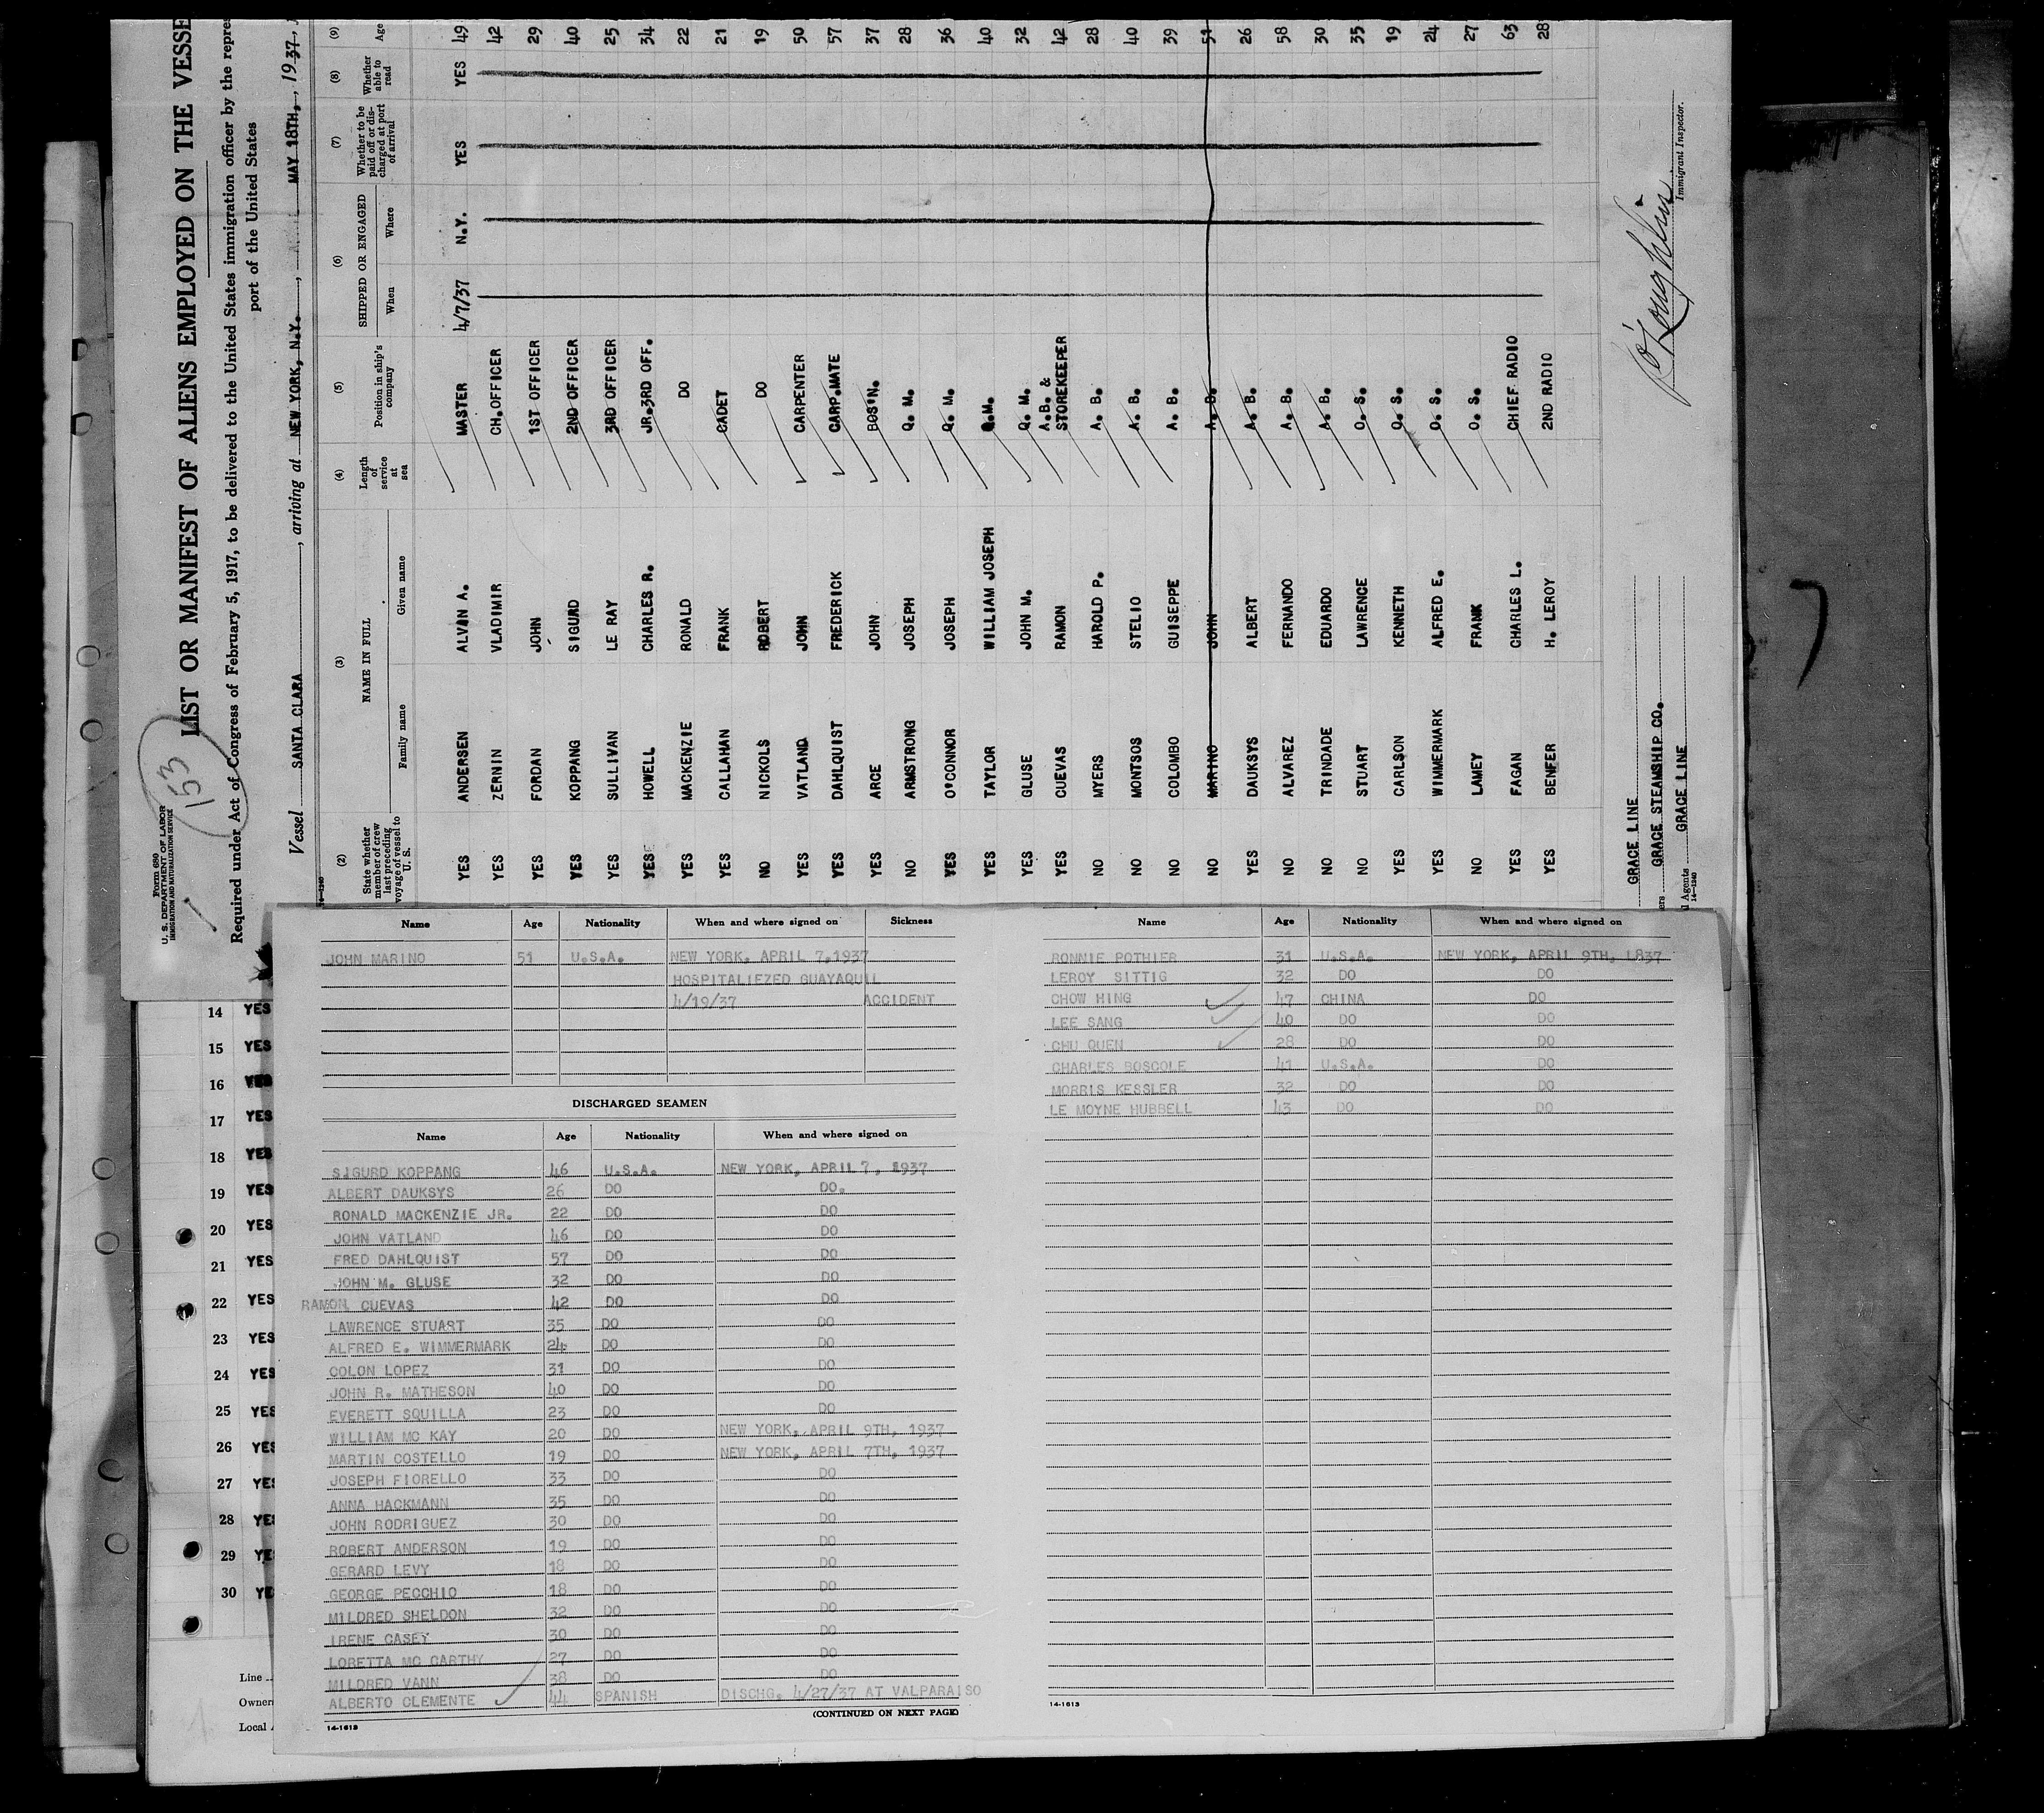 Form 680
U. S. DEPARTMENT OF LABOR
IMMIGRATION AND NATURALIZATION SERVICE
153
LIST OR MANIFEST OF ALIENS EMPLOYED ON THE VESSE
Required under Act of Congress of February 5, 1917, to be delivered to the United States immigration officer by the repres
port of the United States
Vessel SANTA CLARA, arriving at NEW YORK, N.Y., MAY 18TH., 1937,
(2) (3) (4) (5) (6) (7) (8) (9)
State whether member of crew last preceding voyage of vessel to U. S. NAME IN FULL Family name Given name Length of service at sea Position in ship's company SHIPPED OR ENGAGED When Where Whether to be paid off or discharged at port of arrival Whether able to read Age
YES ANDERSEN ALVIN A. MASTER 4/7/37 N.Y. YES YES 49
YES ZERNIN VLADIMIR CH.OFFICER 42
YES FORDAN JOHN 1ST OFFICER 29
YES KOPPANG SIGURD 2ND OFFICER 40
YES SULLIVAN LE RAY 3RD OFFICER 25
YES HOWELL CHARLES R. JR.3RD OFF. 34
YES MACKENZIE RONALD DO 22
YES CALLAHAN FRANK CADET 21
NO NICKOLS ROBERT DO 19
YES VATLAND JOHN CARPENTER 50
YES DAHLQUIST FREDERICK CARP.MATE 57
YES ARCE JOHN BOS'N. 37
NO ARMSTRONG JOSEPH Q. M. 28
YES O'CONNOR JOSEPH Q. M. 36
YES TAYLOR WILLIAM JOSEPH Q.M. 40
YES GLUSE JOHN M. Q. M. 32
YES CUEVAS RAMON A.B. & STOREKEEPER 42
NO MYERS HAROLD P. A. B. 28
NO MONTSOS STELIO A. B. 40
NO COLOMBO GUISEPPE A. B. 39
NO MARINO JOHN A. B. 51
YES DAUKSYS ALBERT A. B. 26
NO ALVAREZ FERNANDO A. B. 58
NO TRINDADE EDUARDO A. B. 30
NO STUART LAWRENCE O. S. 35
YES CARLSON KENNETH O. S. 19
YES WIMMERMARK ALFRED E. O. S. 24
NO LAMEY FRANK O. S. 27
YES FAGAN CHARLES L. CHIEF RADIO 63
YES BENFER H. LEROY 2ND RADIO 28
GRACE LINE
GRACE STEAMSHIP CO.
l Agents GRACE LINE
14-1240
Immigrant Inspector.
14 YES
15 YES
16 YES
17 YES
18 YES
19 YES
20 YES
21 YES
22 YES
23 YES
24 YES
25 YES
26 YES
27 YES
28 YES
29 YE
30 YE
Line
Owner
Local A
Name Age Nationality When and where signed on Sickness
JOHN MARINO 51 U.S.A. NEW YORK, APRIL 7,1937
HOSPITALIEZED GUAYAQUIL
4/19/37 ACCIDENT
DISCHARGED SEAMEN
Name Age Nationality When and where signed on
SIGURD KOPPANG 46 U.S.A. NEW YORK, APRIL 7, 1937
ALBERT DAUKSYS 26 DO DO.
RONALD MACKENZIE JR. 22 DO DO
JOHN VATLAND 46 DO DO
FRED DAHLQUIST 57 DO DO
JOHN M. GLUSE 32 DO DO
RAMON CUEVAS 42 DO DO
LAWRENCE STUART 35 DO DO
ALFRED E. WIMMERMARK 24 DO DO
COLON LOPEZ 31 DO DO
JOHN R. MATHESON 40 DO DO
EVERETT SQUILLA 23 DO DO
WILLIAM MC KAY 20 DO NEW YORK, APRIL 9TH, 1937
MARTIN COSTELLO 19 DO NEW YORK, APRIL 7TH, 1937
JOSEPH FIORELLO 33 DO DO
ANNA HACKMANN 35 DO DO
JOHN RODRIGUEZ 30 DO DO
ROBERT ANDERSON 19 DO DO
GERARD LEVY 18 DO DO
GEORGE PECCHIO 18 DO DO
MILDRED SHELDON 32 DO DO
IRENE CASEY 30 DO DO
LORETTA MC CARTHY 27 DO DO
MILDRED VANN 38 DO DO
ALBERTO CLEMENTE 44 SPANISH DISCHG. 4/27/37 AT VALPARAISO
(CONTINUED ON NEXT PAGE)
14-1613
Name Age Nationality When and where signed on
RONNIE POTHIER 31 U.S.A. NEW YORK, APRIL 9TH, 1837
LEROY SITTIG 32 DO DO
CHOW HING 47 CHINA DO
LEE SANG 40 DO DO
CHU QUEN 28 DO DO
CHARLES BOSCOLE 41 U.S.A. DO
MORRIS KESSLER 32 DO DO
LE MOYNE HUBBELL 43 DO DO
14-1613